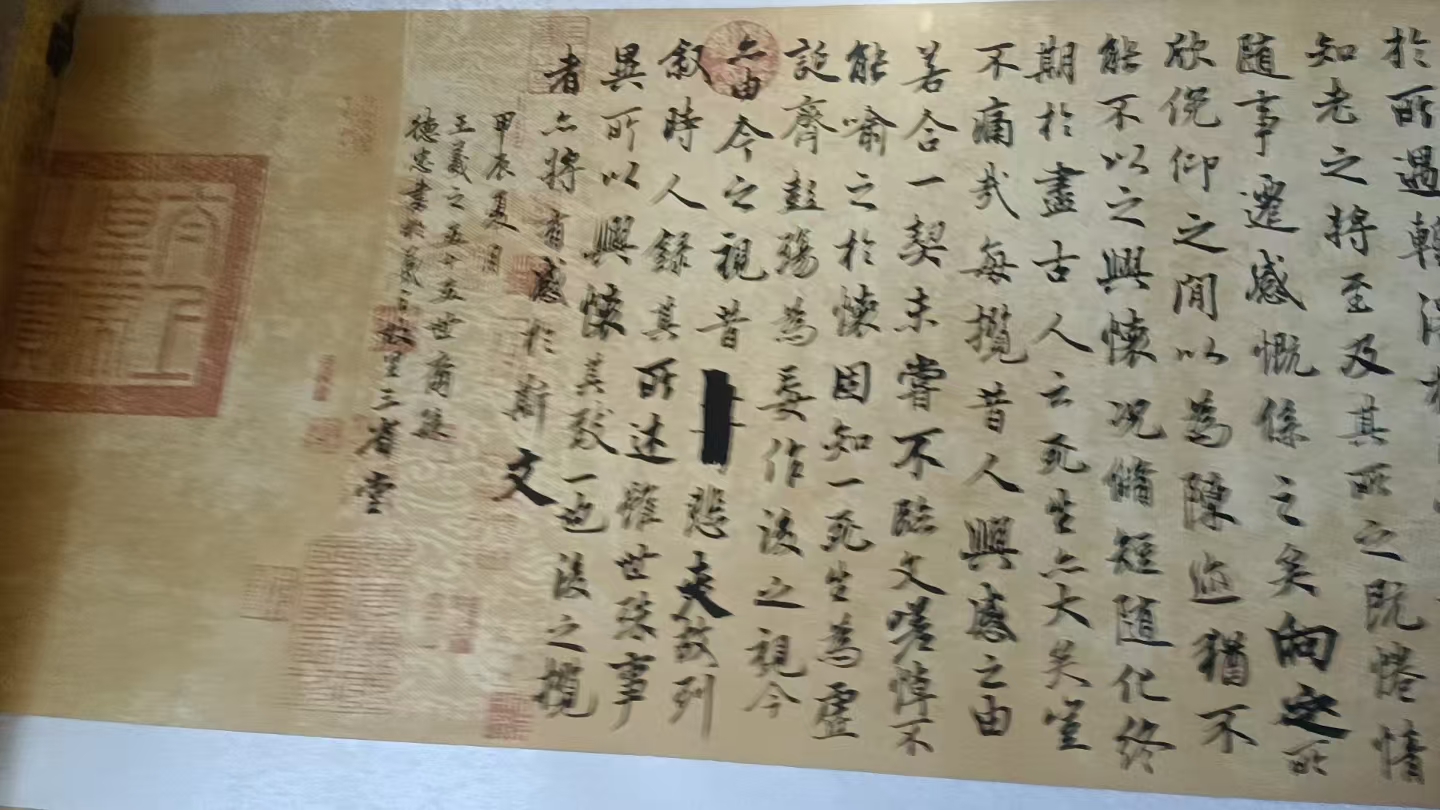 於所遇
知老之將至及其所之既惓情
随事遷感慨係之矣向之所
欣俛仰之閒以為陳迹猶不
能不以之興懷況脩短随化終
期於盡古人云死生亦大矣豈
不痛哉每攬昔人興感之由
若合一契未甞不臨文嗟悼不
能喻之於懷固知一死生為虛
誕齊彭殤為妄作後之視今
亦由今之視昔悲夫故列
叙時人錄其所述雖世殊事
異所以興懷其致一也後之攬
者亦將有感於斯文
甲辰夏月
王羲之五十五世裔孫
德忠書於羲之故里三省堂
太上
皇帝